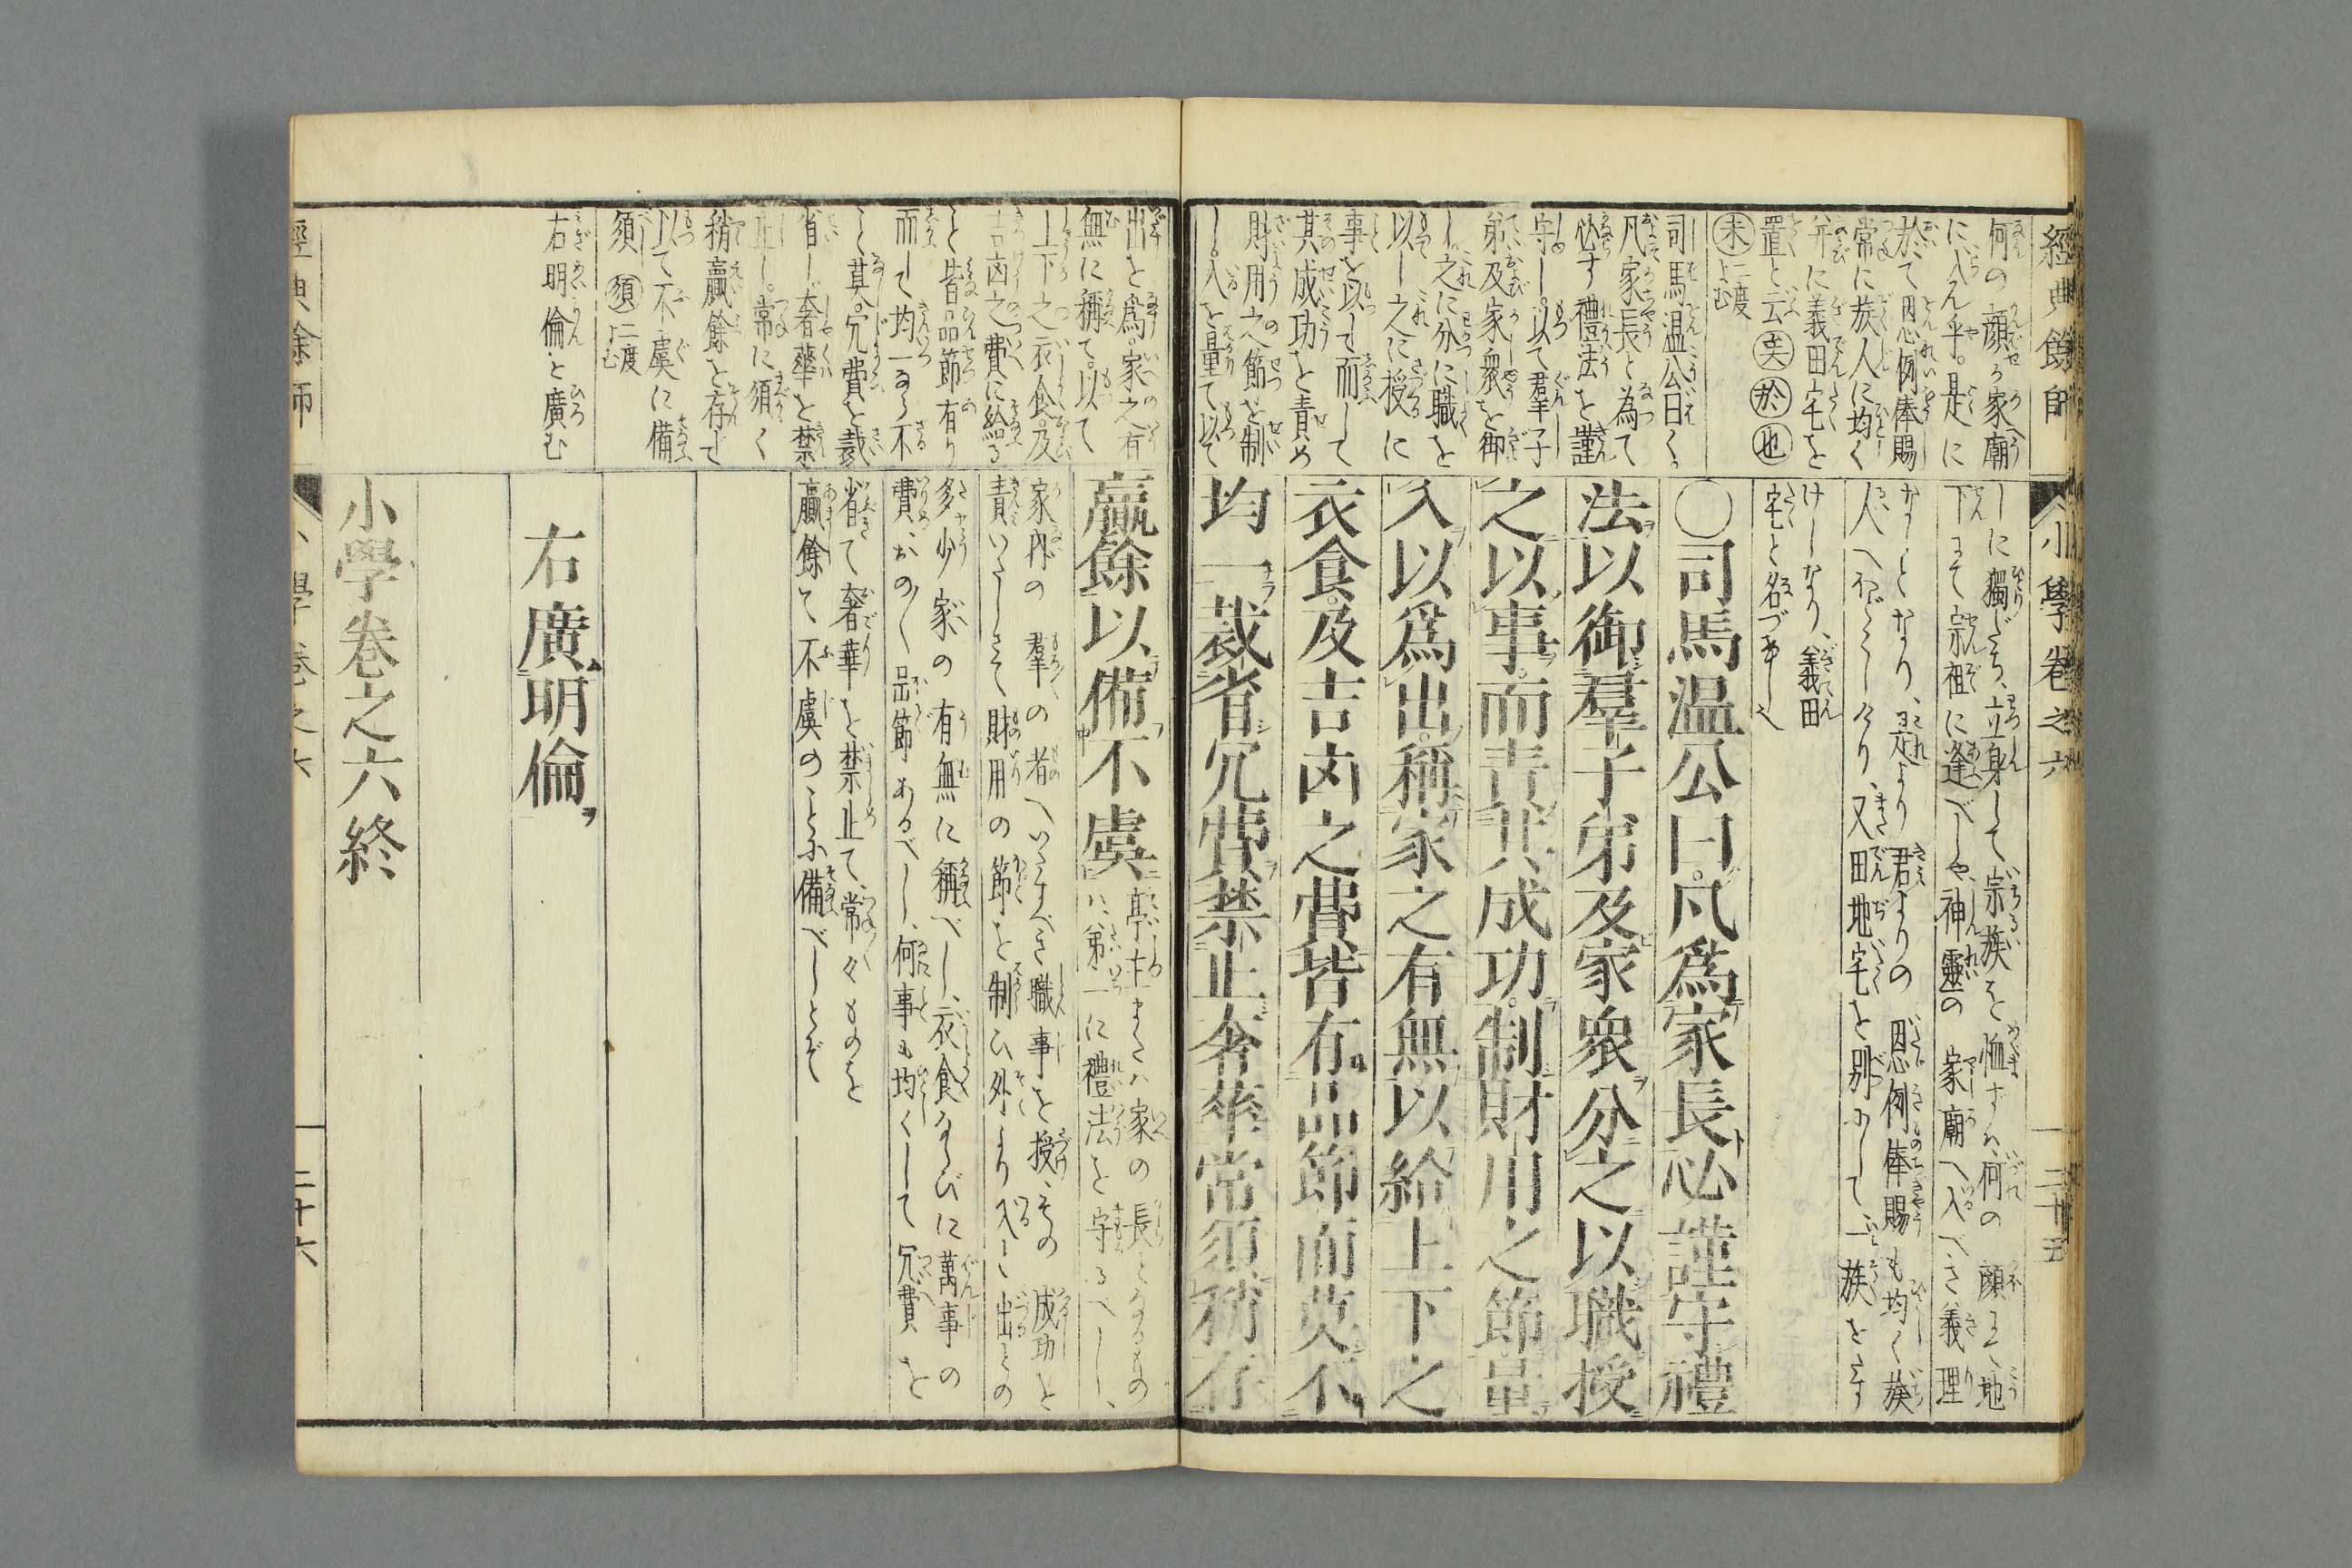 經典餘師
何の顔ら家廟
に入ん乎。是に
於て恩例俸賜
常に族人に均く
并に義田宅を
置と云 矣 於 也
未 二度よむ
司馬温公曰く。
凡家長と為て
必す禮法を謹
守し。以て羣子
弟及家衆を御
し。之に分に職を
以し之に授に
事を以して而して
其成功を責め
財用之節を制
し。入を量て以て
小學卷之六
しに獨だち、立身して、宗族を恤ずハ、何の顔にて地
下にて宗祖に逢べしや、神靈の家廟へ入べき義理
なしとなり、是より君よりの恩例俸賜も均く族
人へほどこしけり、又田地宅を別にして一族をす
けしなり、義田
宅と名づけし也
二十五
〇司馬温公曰。凡爲家長必謹守禮
法以御羣子弟及家衆分之以職授
之以事。而責其成功。制財用之節量
入以爲出。稱家之有無以給上下之
衣食。及吉凶之費皆有品節而莫不
均一裁省冗費禁止奢華常須稍存
出を為。家之有
無に稱て。以て
上下之衣食。及
吉凶之費に給る
と皆品節有り
而して均一ならざ不
く莫。冗費を裁
省し奢華を禁
止し。常に須く
稍贏餘を存じ
以て不虞に備
須 須 二度よむ
右明倫を廣む
贏餘以備不虞
亭主または家の長となるもの
は、第一に禮法を守るべし、
家内の羣の者へいたすべき職事を授、その成功を
責いたしさて財用の節を制ひ外より入と出との
多少家の有無に稱べし、衣食ならびに萬事の
費、おの〱品節あるべし、何事も均くして冗費を
省て奢華を禁止て、常々ものを
贏餘て不虞のことに備べしとぞ
右廣明倫
小學卷之六終
經典餘師
小學卷之六
二十六